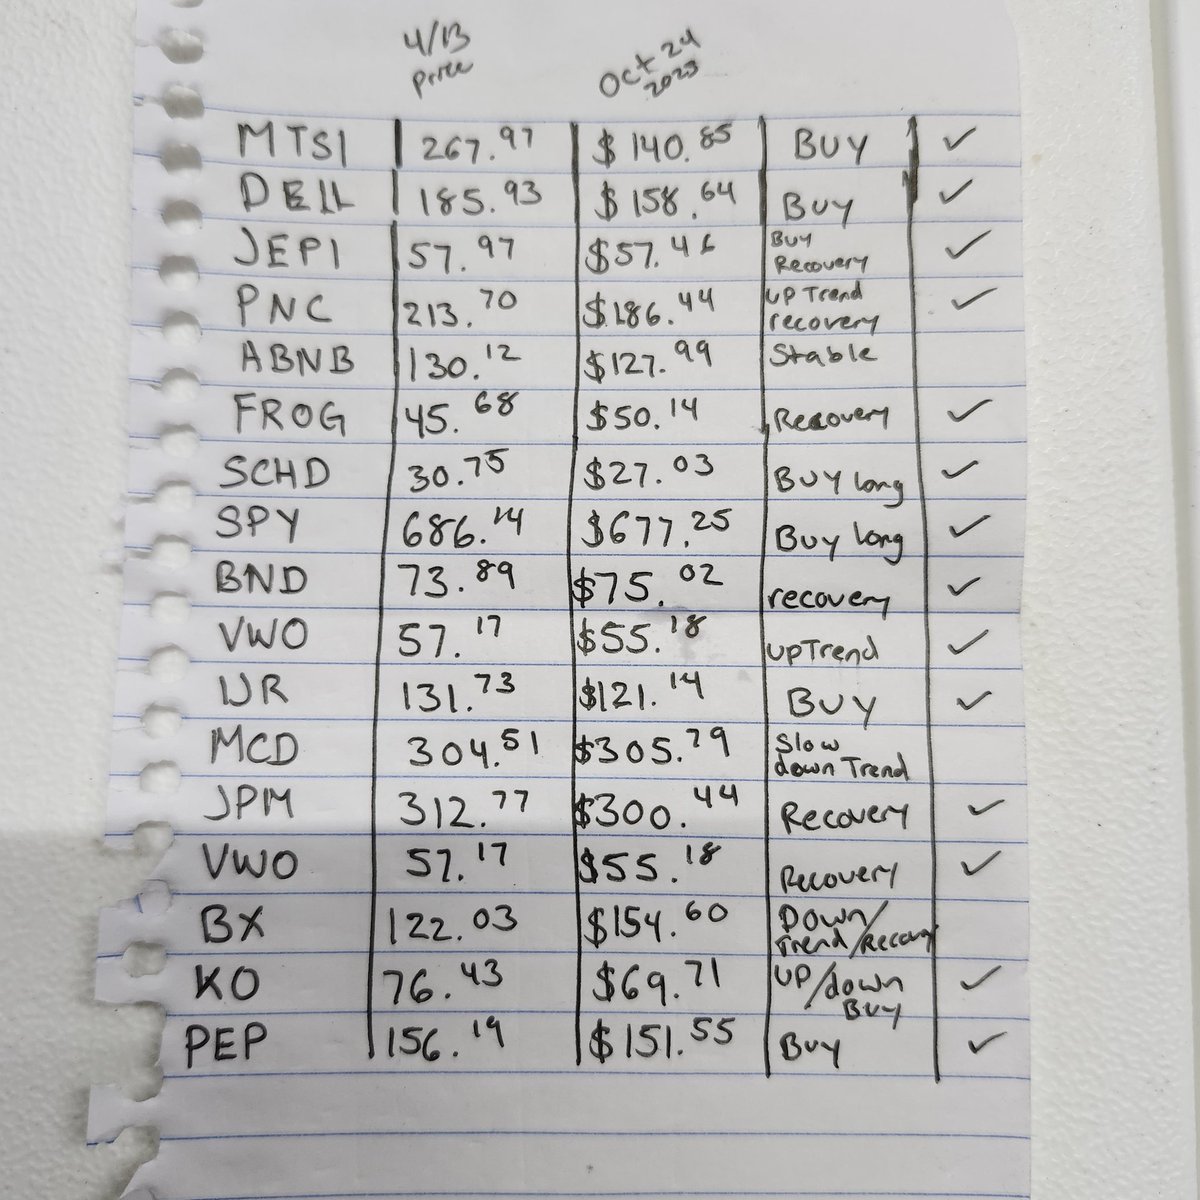 4/13 price Oct 24 2025
MTSI 267.97 $140.85 BUY ✓
DELL 185.93 $158.64 Buy ✓
JEPI 57.97 $57.46 Buy Recovery ✓
PNC 213.70 $186.44 UP Trend recovery ✓
ABNB 130.12 $127.99 Stable
FROG 45.68 $50.14 Recovery ✓
SCHD 30.75 $27.03 BUY long ✓
SPY 686.14 $677.25 Buy long ✓
BND 73.89 $75.02 recovery ✓
VWO 57.17 $55.18 upTrend ✓
IJR 131.73 $121.14 BUY ✓
MCD 304.51 $305.79 Slow down Trend
JPM 312.77 $300.44 Recovery ✓
VWO 57.17 $55.18 Recovery ✓
BX 122.03 $154.60 Down/Trend/Recovry
KO 76.43 $69.71 UP/down Buy ✓
PEP 156.19 $151.55 Buy ✓